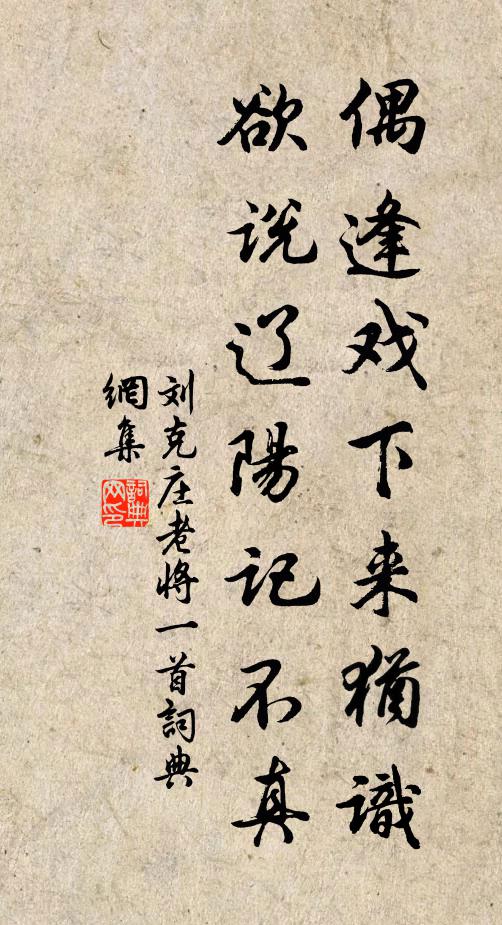 偶逢戏下来猶識
欲说辽陽记不真
刘克庄老将一首詞典
網集
詞典
网印